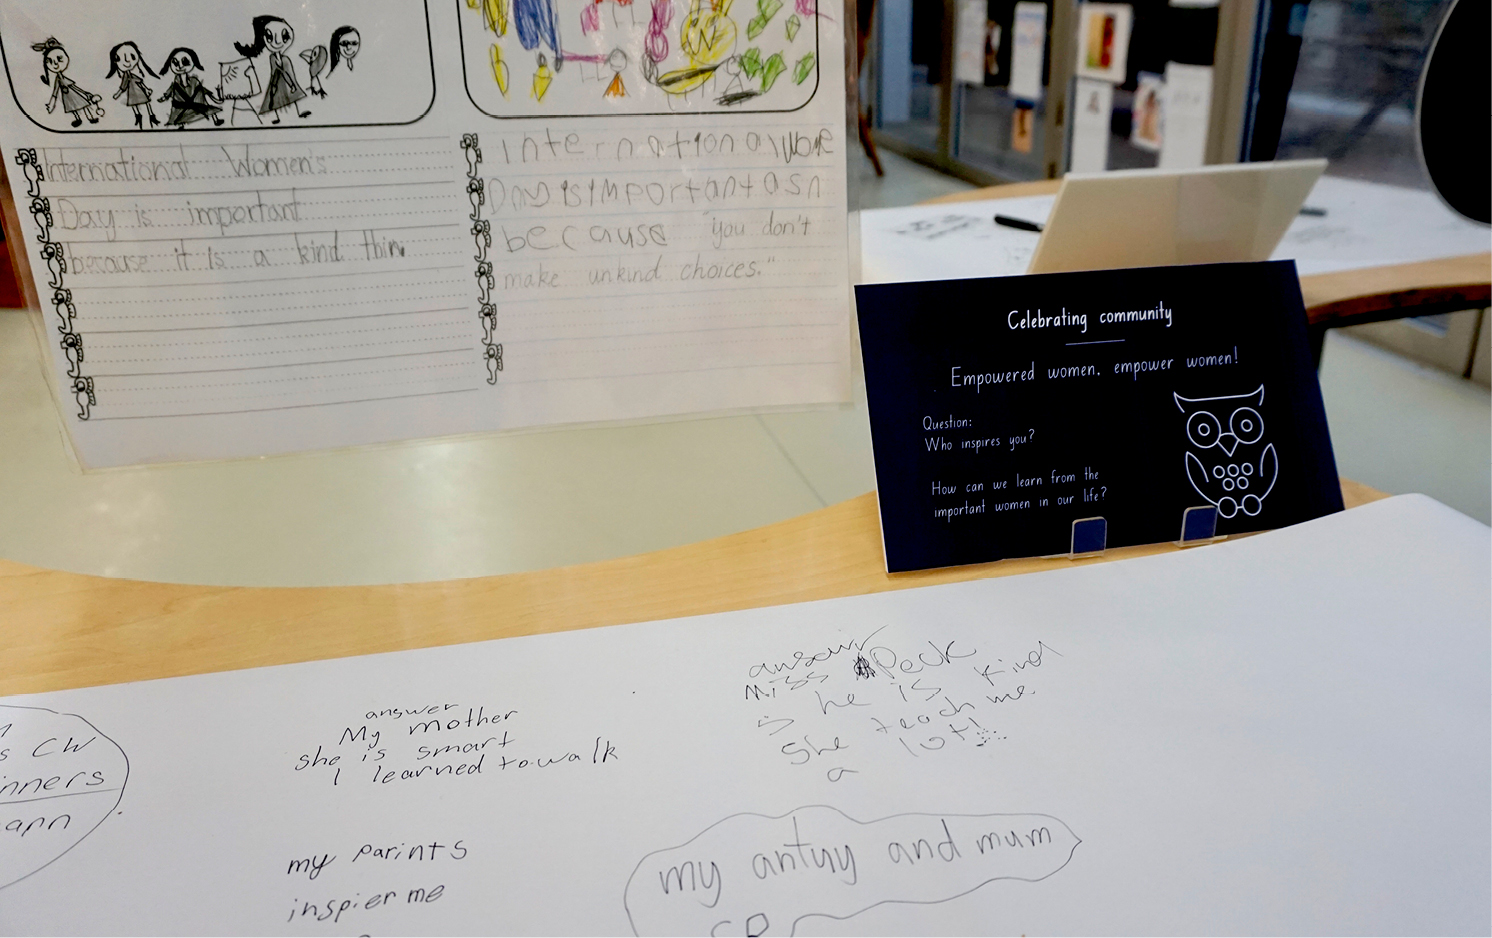 International Women's
Day is important
because it is a kind thin
Internation a wome
Day is important asn
because "you don't
make unkind choices."
Celebrating community
Empowered women. empower women!
Question:
Who inspires you?
How can we learn from the
important women in our life?
s CW
inners
ann
answer
My mother
she is smart
I learned to walk
ansair
Miss Peck
is he is kind
She teach me
a lot!
my parints
inspier me
my antuy and mum